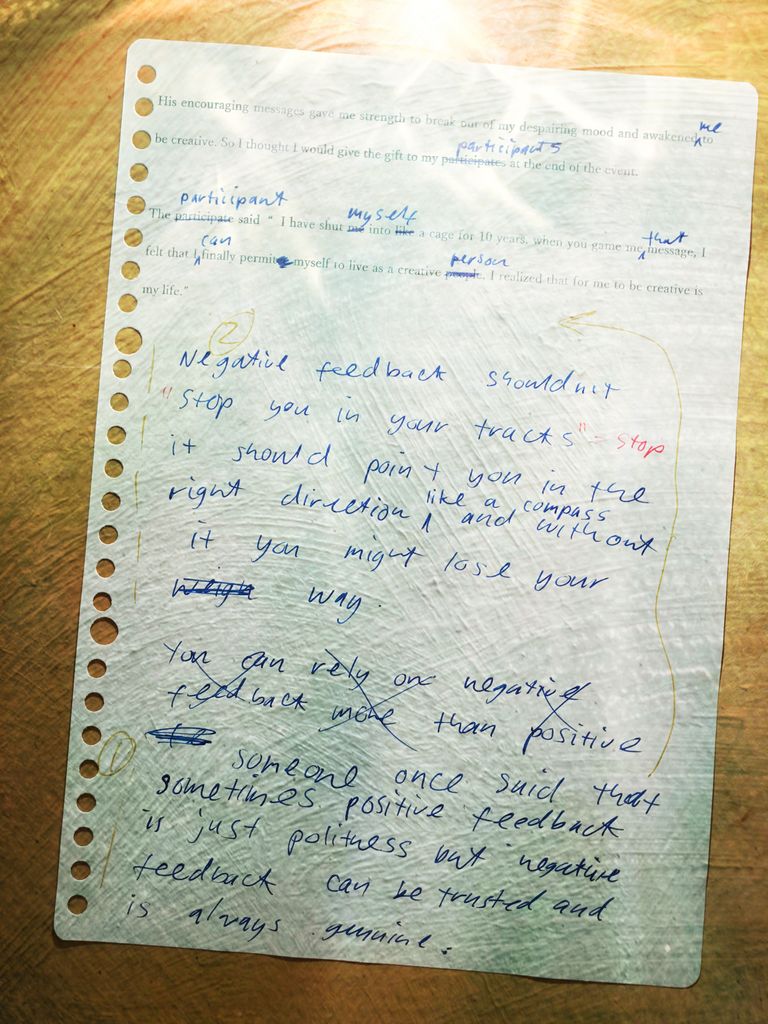 His encouraging messages gave me strength to break out of my despairing mood and awakened me to
be creative. So I thought I would give the gift to my participates participants at the end of the event.
The participate participant said " I have shut me myself into like a cage for 10 years, when you game me that message, I
felt that I can finally permit myself to live as a creative people person. I realized that for me to be creative is
my life."
②
Negative feedback shouldn't
"stop you in your tracks" = stop
it should point you in the
right direction like a compass and without
it you might lose your
weigh way.
You can rely one negative
feedback more than positive
①
someone once said that
sometimes positive feedback
is just politness but negative
feedback can be trusted and
is always genuine.